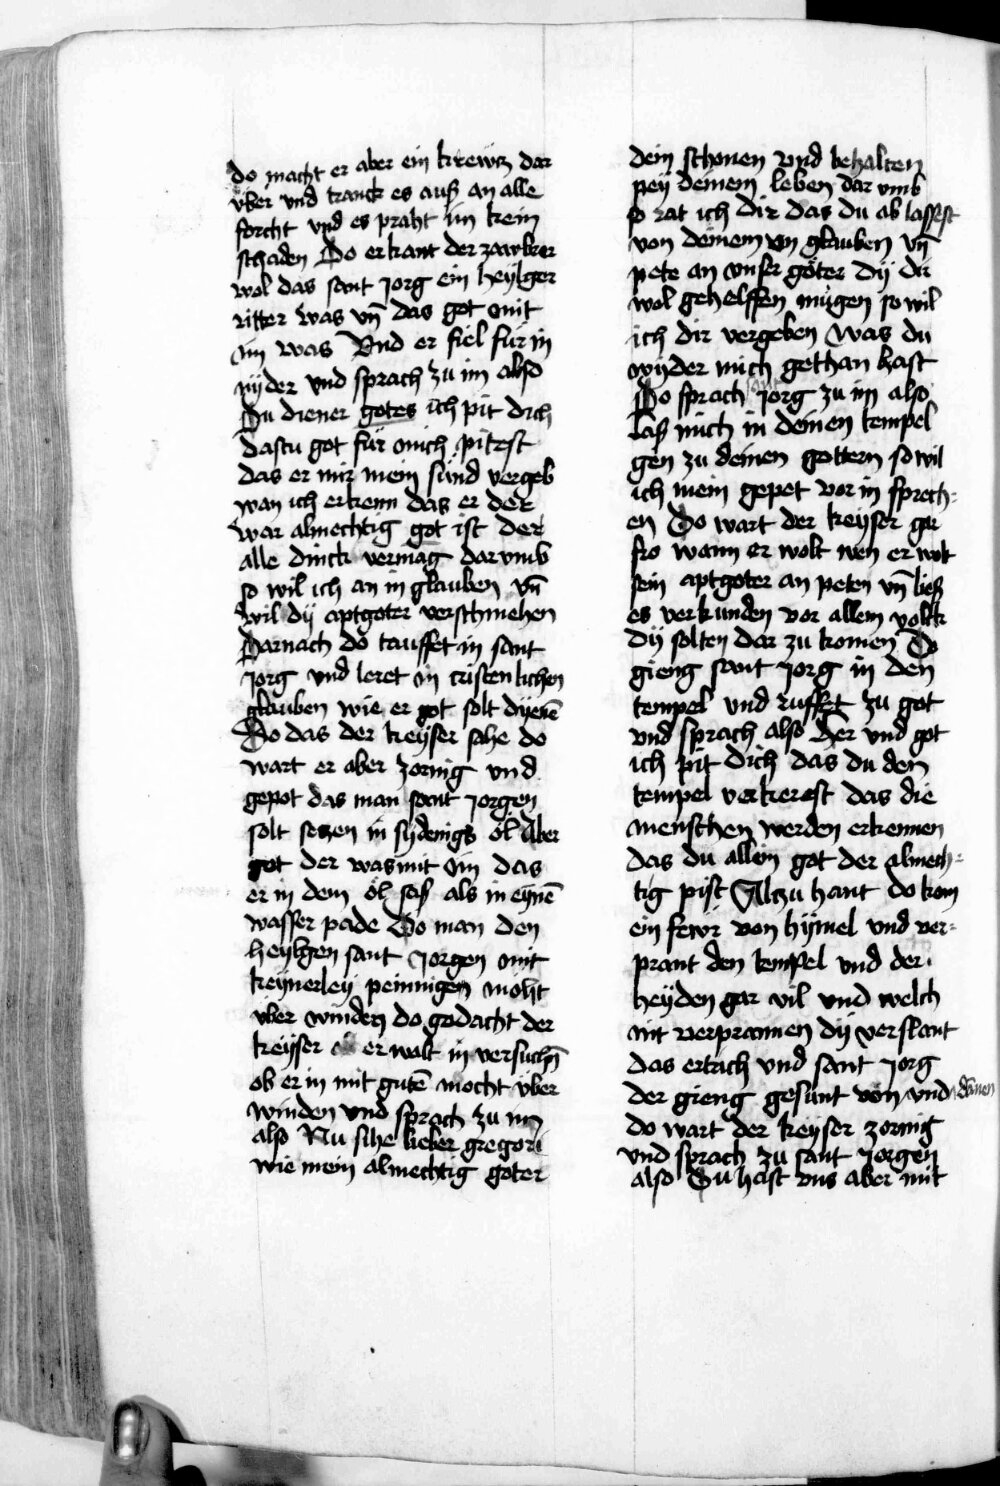 do macht er aber ein krewcz dar
vber vnd tranck es auß an alle
forcht vnd es praht im kein
schaden Do erkant der zawbrer
wol das sant jorg ein heylger
ritter was vn̄ das got mit
im was Vnd er fiel für in
nyder vnd sprach zu im also
Du diener gotes ich pit dich
dastu got für mich pitest
das er mir mein sünd vergeb
wan ich erkenn das er der
war almechtig got ist der
alle dinck vermag dar vmb
so wil ich an in glauben vn̄
wil dÿ aptgoter verschmehen
Darnach do tauffet in sant
Jorg vnd leret in cristenlichen
glauben wie er got solt dyenē
Do das der keyser sahe do
wart er aber zornig vnd
gepot das man sant jorgen
solt seczen in sydenigs öl Aber
got der was mit im das
er in dem öl saß als in eynē
wasser pade Do man den
heylgen sant Jorgen mit
keynerley peinnigen moht
vber winden do gedacht der
keysser er walt in versuchn̄
ob er in mit gutē mocht vber
winden vnd sprach zu im
also Nu sihe lieber gregori
wie mein almechtig goter
dein schonen vnd behalten
pey deinem leben dar vmb
so rat ich dir das du ab lassest
von deinem vn glauben vn̄
pete an vnser göter dÿ dir
wol gehelffen mügen so wil
ich dir vergeben was du
wyder mich gethan hast
Do sprach sant jorg zu im also
Laß mich in deinen tempel
gen zu deinen gottern so wil
ich mein gepet vor in sprech=
en Do wart der keyser gar
fro wann er wolt wen er wolt
sein aptgoter an peten vn̄ ließ
es verkunden vor allem volck
dÿ solten dar zu komen Do
gieng sant jorg in den
tempel vnd ruffet zu got
vnd sprach also Her vnd got
ich pit dich das du den
tempel verkerest das die
menschen werden erkennen
das du allein got der almech=
tig pist Alczu hant do kom
ein fewr von hÿmel vnd ver=
prant den tempel vnd der
heyden gar vil vnd welch
nit verprannen dÿ verslant
das ertrich vnd sant jorg
der gieng gesunt von dānen vnd
do wart der keyser zornig
vnd sprach zu sant jorgen
also Du hast vns aber mit